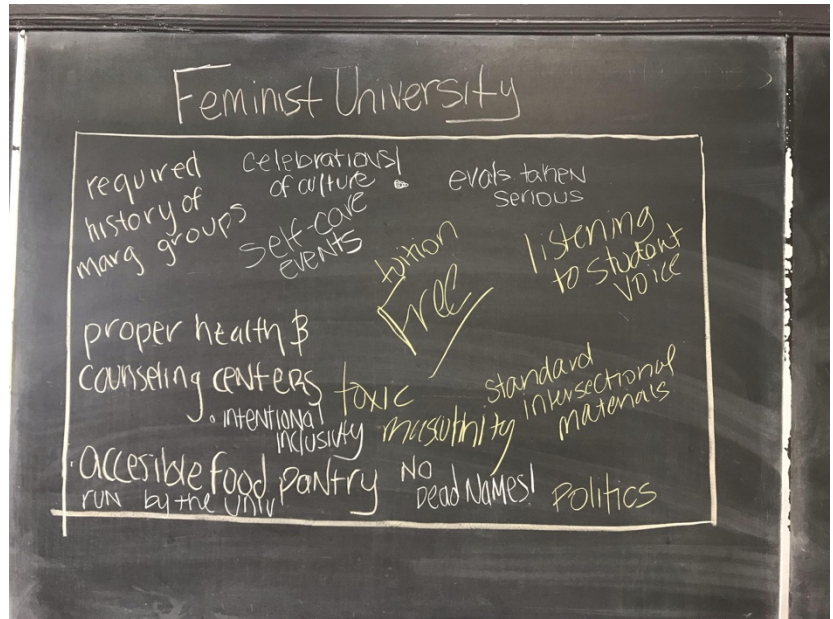 Feminist University
required
history of
marg groups
celebrations
of culture
self-care
events
evals taken
serious
tuition
Free
listening
to student
voice
proper health &
counseling centers
• intentional
inclusivity
toxic
masulinity
standard
intersectional
materials
accesible food pantry
run by the univ
No
Dead Names!
Politics